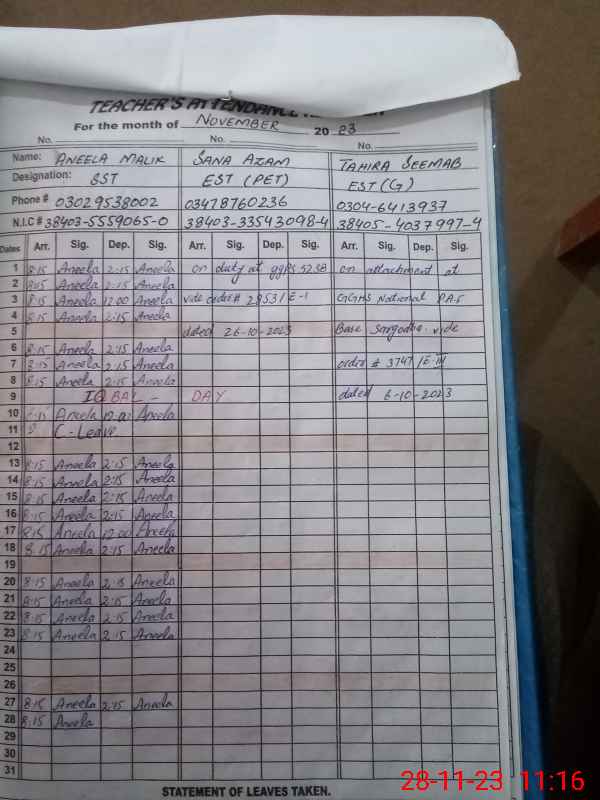 TEACHER'S ATTENDANCE
For the month of NOVEMBER 2023
No. No. No.
Name: ANEELA MALIK SANA AZAM TAHIRA SEEMAB
Designation: SST EST (PET) EST (G)
Phone # 03029538002 03478760236 0304-6413937
N.I.C # 38403-5559065-0 38403-33543098-4 38405-4037997-4
Dates Arr. Sig. Dep. Sig. Arr. Sig. Dep. Sig. Arr. Sig. Dep. Sig.
1 8:15 Aneela 2:15 Aneela on duty at on attachment at
2 8:15 Aneela 2:15 Aneela
3 8:15 Aneela 12:00 Aneela vide order # /E-1 GGHS National PAF
4 8:15 Aneela 2:15 Aneela
5 dated 26-10-2023 Base Sargodha vide
6 8:15 Aneela 2:15 Aneela
7 8:15 Aneela 2:15 Aneela order # 3747/E-III
8 8:15 Aneela 2:15 Aneela
9 IQBAL - DAY dated 6-10-2023
10 8:15 Aneela 12:00 Aneela
11 C-Leave
12
13 8:15 Aneela 2:15 Aneela
14 8:15 Aneela 2:15 Aneela
15 8:15 Aneela 2:15 Aneela
16 8:15 Aneela 2:15 Aneela
17 8:15 Aneela 12:00 Aneela
18 8:15 Aneela 2:15 Aneela
19
20 8:15 Aneela 2:15 Aneela
21 8:15 Aneela 2:15 Aneela
22 8:15 Aneela 2:15 Aneela
23 8:15 Aneela 2:15 Aneela
24
25
26
27 8:15 Aneela 2:15 Aneela
28 8:15 Aneela
29
30
31
STATEMENT OF LEAVES TAKEN.
28-11-23 11:16